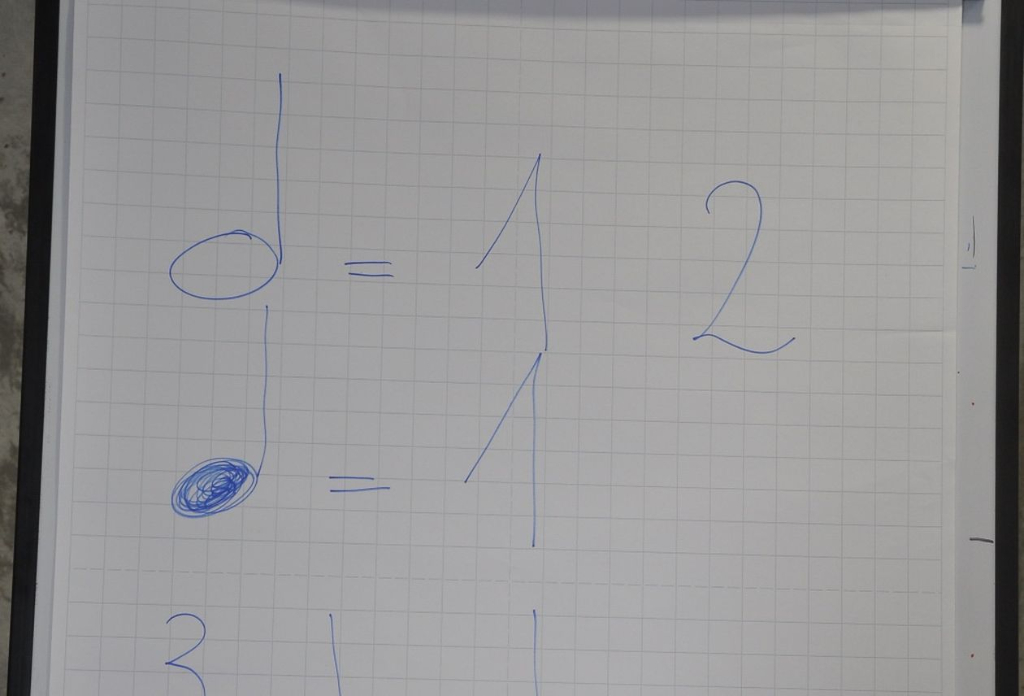 𝅗𝅥 = 1 2
♩ = 1
3 | |